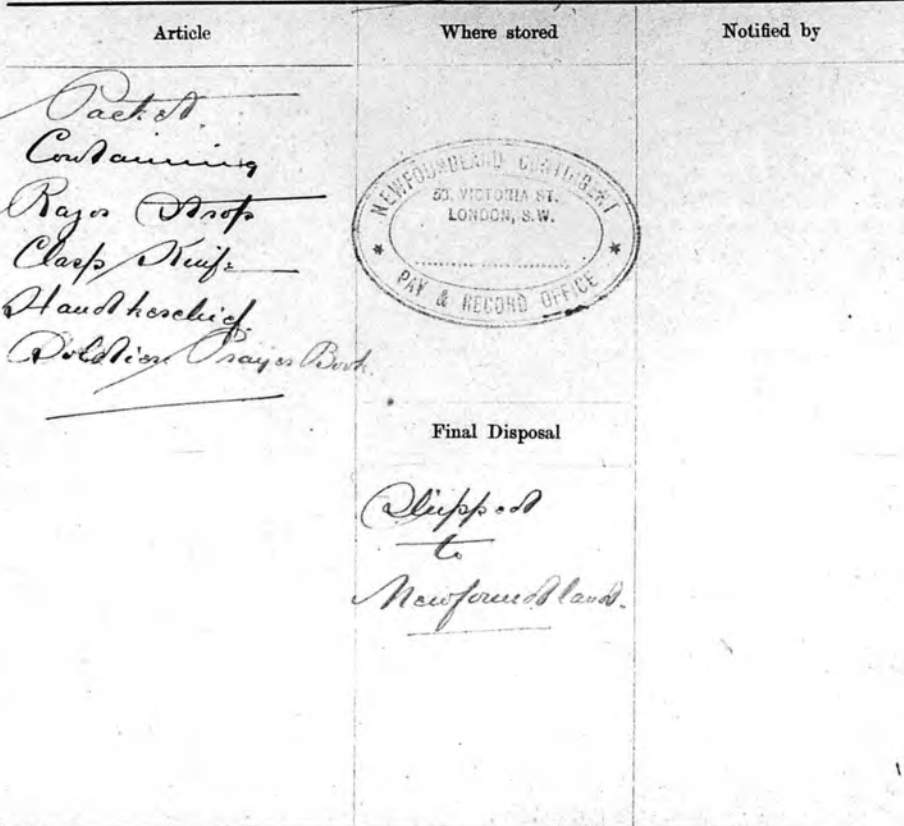 Article
Packet
Containing
Razor Strop
Clasp Knife
Handkerchief
Soldiers Prayer Book.
Where stored
NEWFOUNDLAND CONTINGENT
53, VICTORIA ST.
LONDON, S.W.
PAY & RECORD OFFICE
Final Disposal
Shipped
to
Newfoundland.
Notified by